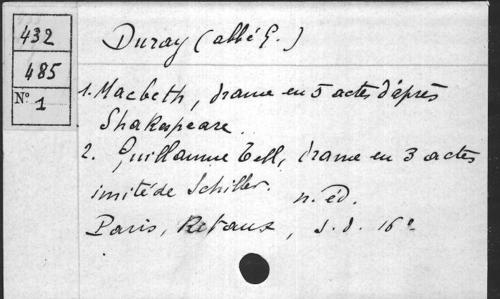 432
485
N° 1
Duray (abbé G.)
1. Macbeth, drame en 5 actes d'après
Shakespeare.
2. Guillaume Tell, drame en 3 actes
imité de Schiller. n. éd.
Paris, Retaux, s. d. 16°